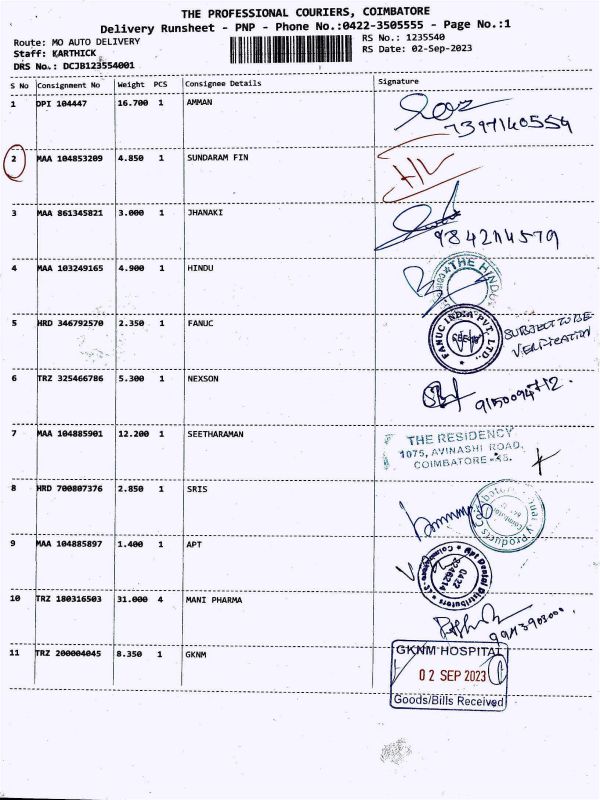 THE PROFESSIONAL COURIERS, COIMBATORE
Delivery Runsheet - PNP - Phone No.:0422-3505555 - Page No.:1
Route: MO AUTO DELIVERY
RS No.: 1235540
Staff: KARTHICK
RS Date: 02-Sep-2023
DRS No.: DCJB123554001
S No Consignment No Weight PCS Consignee Details Signature
1 DPI 104447 16.700 1 AMMAN
7397140559
2 MAA 104853209 4.850 1 SUNDARAM FIN
H/L
3 MAA 861345821 3.000 1 JHANAKI
9842114579
4 MAA 103249165 4.900 1 HINDU
THE HINDU
5 HRD 346792570 2.350 1 FANUC
FANUC INDIA PVT. LTD.
SUBJECT TO BE
VERIFICATION
6 TRZ 325466786 5.300 1 NEXSON
7 MAA 104885901 12.200 1 SEETHARAMAN
THE RESIDENCY
1075, AVINASHI ROAD,
COIMBATORE
8 HRD 700807376 2.850 1 SRIS
9 MAA 104885897 1.400 1 APT
Apt Dental Distributors
0422
10 TRZ 180316503 31.000 4 MANI PHARMA
11 TRZ 200004045 8.350 1 GKNM
GKNM HOSPITAL
02 SEP 2023
Goods/Bills Received